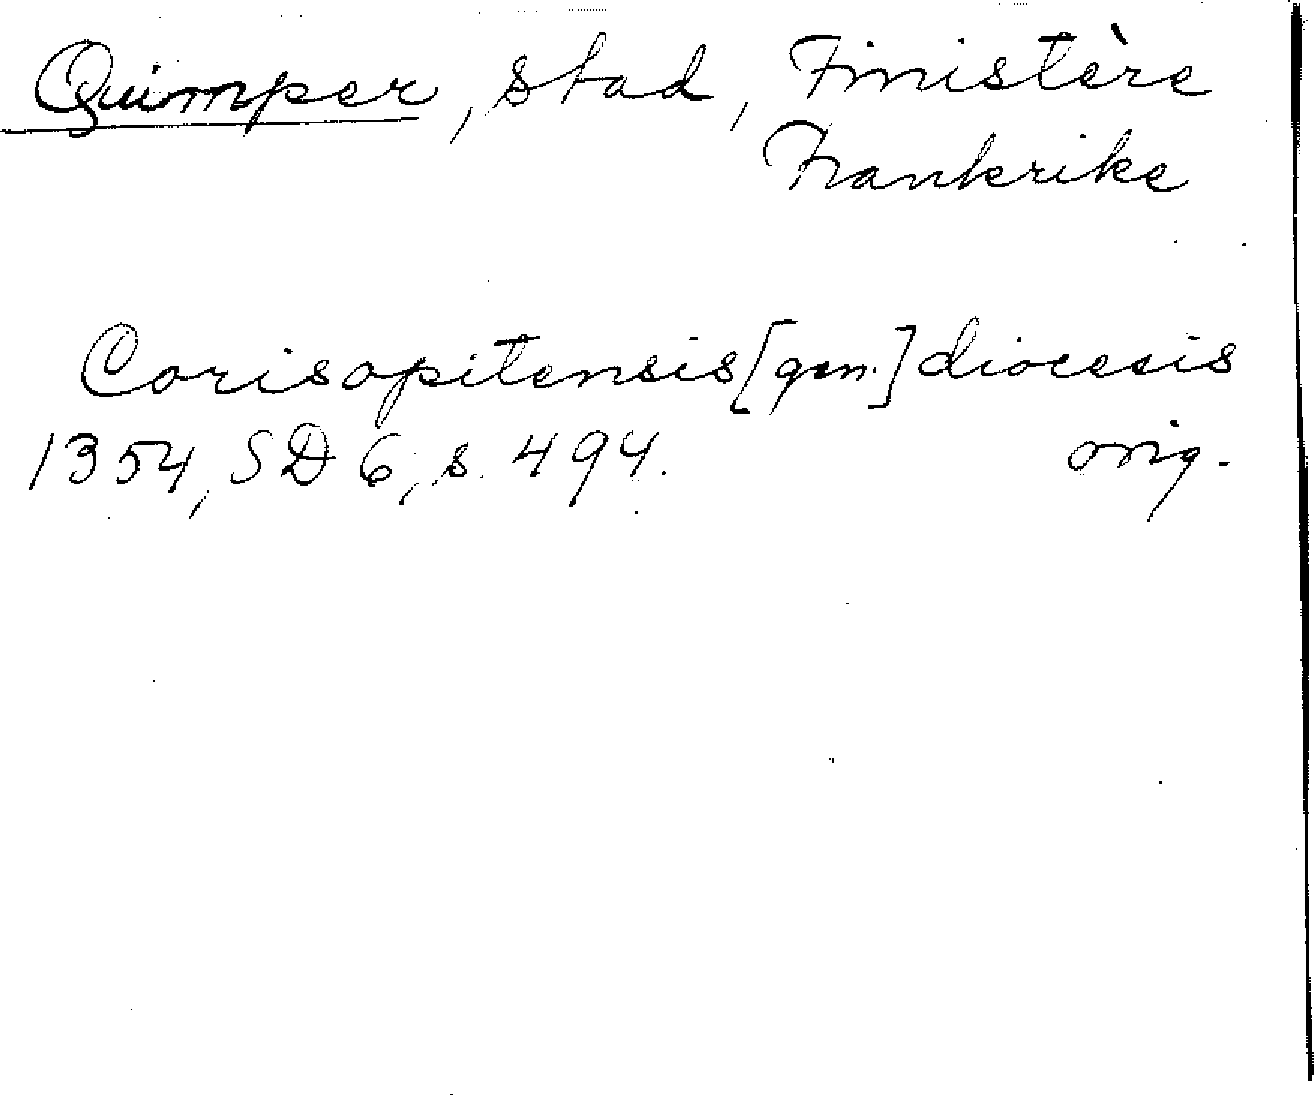 Quimper, stad, Finistère
Frankrike
Corisopitensis [gen.] diocesis
1354, SD 6, s. 494. orig.